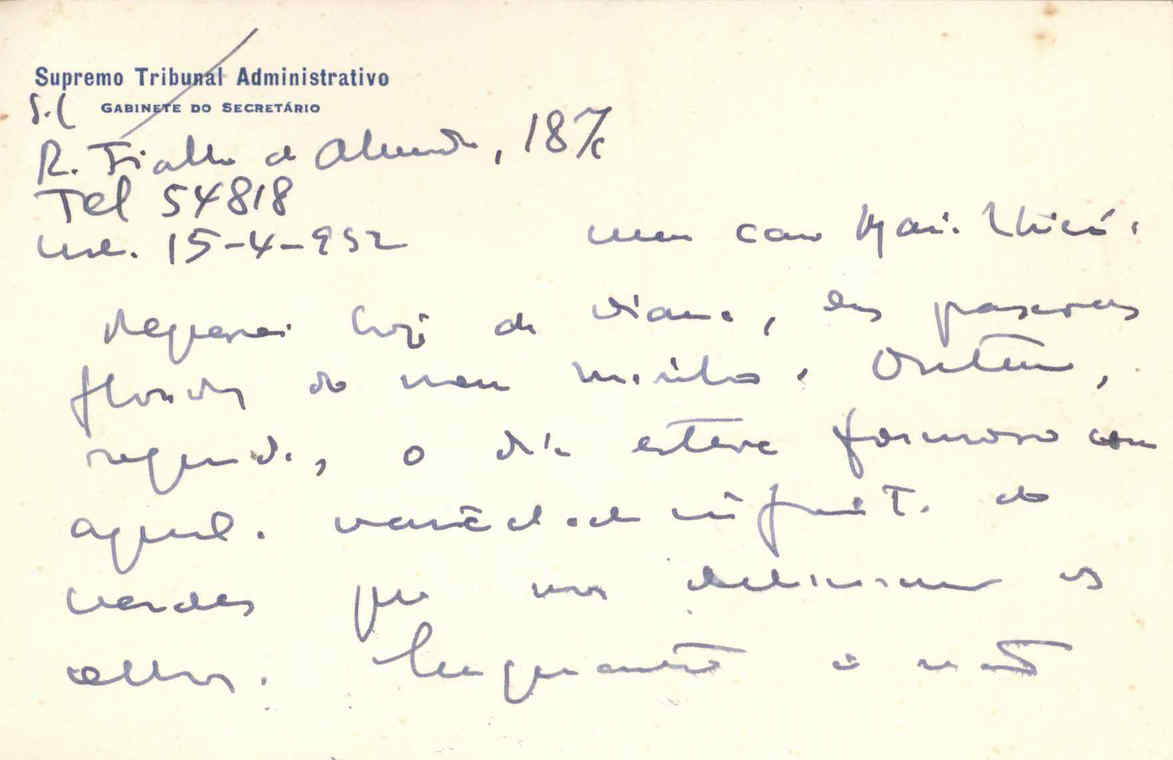 Supremo Tribunal Administrativo
GABINETE DO SECRETÁRIO
S.C
R. Fialho de Almeida, 18 7/c
Tel 54818
15-4-952
meu caro
Regressei hoje de Viana, das pascoas
floridas do meu Minho. Ontem,
segunda, o dia esteve formoso com
aquela variedade infinita de
verdes que nos deliciam os
olhos. Enquanto a